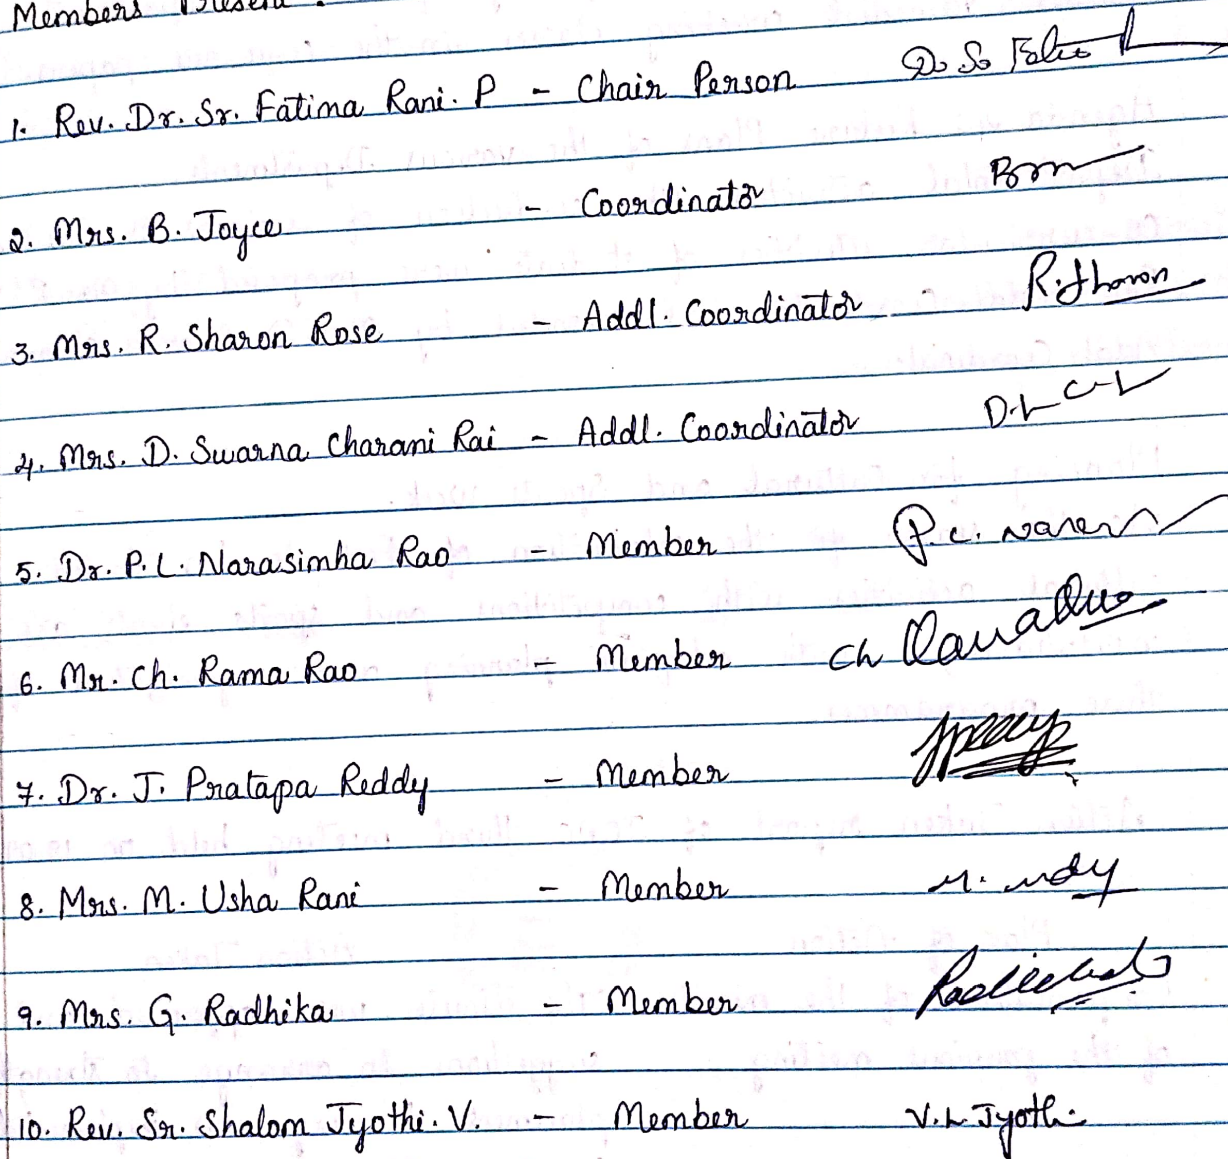 Members Present :
1. Rev. Dr. Sr. Fatima Rani. P - Chair Person
2. Mrs. B. Joyce - Coordinator
3. Mrs. R. Sharon Rose - Addl. Coordinator R. Sharon
4. Mrs. D. Swarna Charani Rai - Addl. Coordinator
5. Dr. P. L. Narasimha Rao - Member
6. Mr. Ch. Rama Rao - Member Ch
7. Dr. J. Pratapa Reddy - Member
8. Mrs. M. Usha Rani - Member
9. Mrs. G. Radhika - Member
10. Rev. Sr. Shalom Jyothi. V. - Member Jyothi